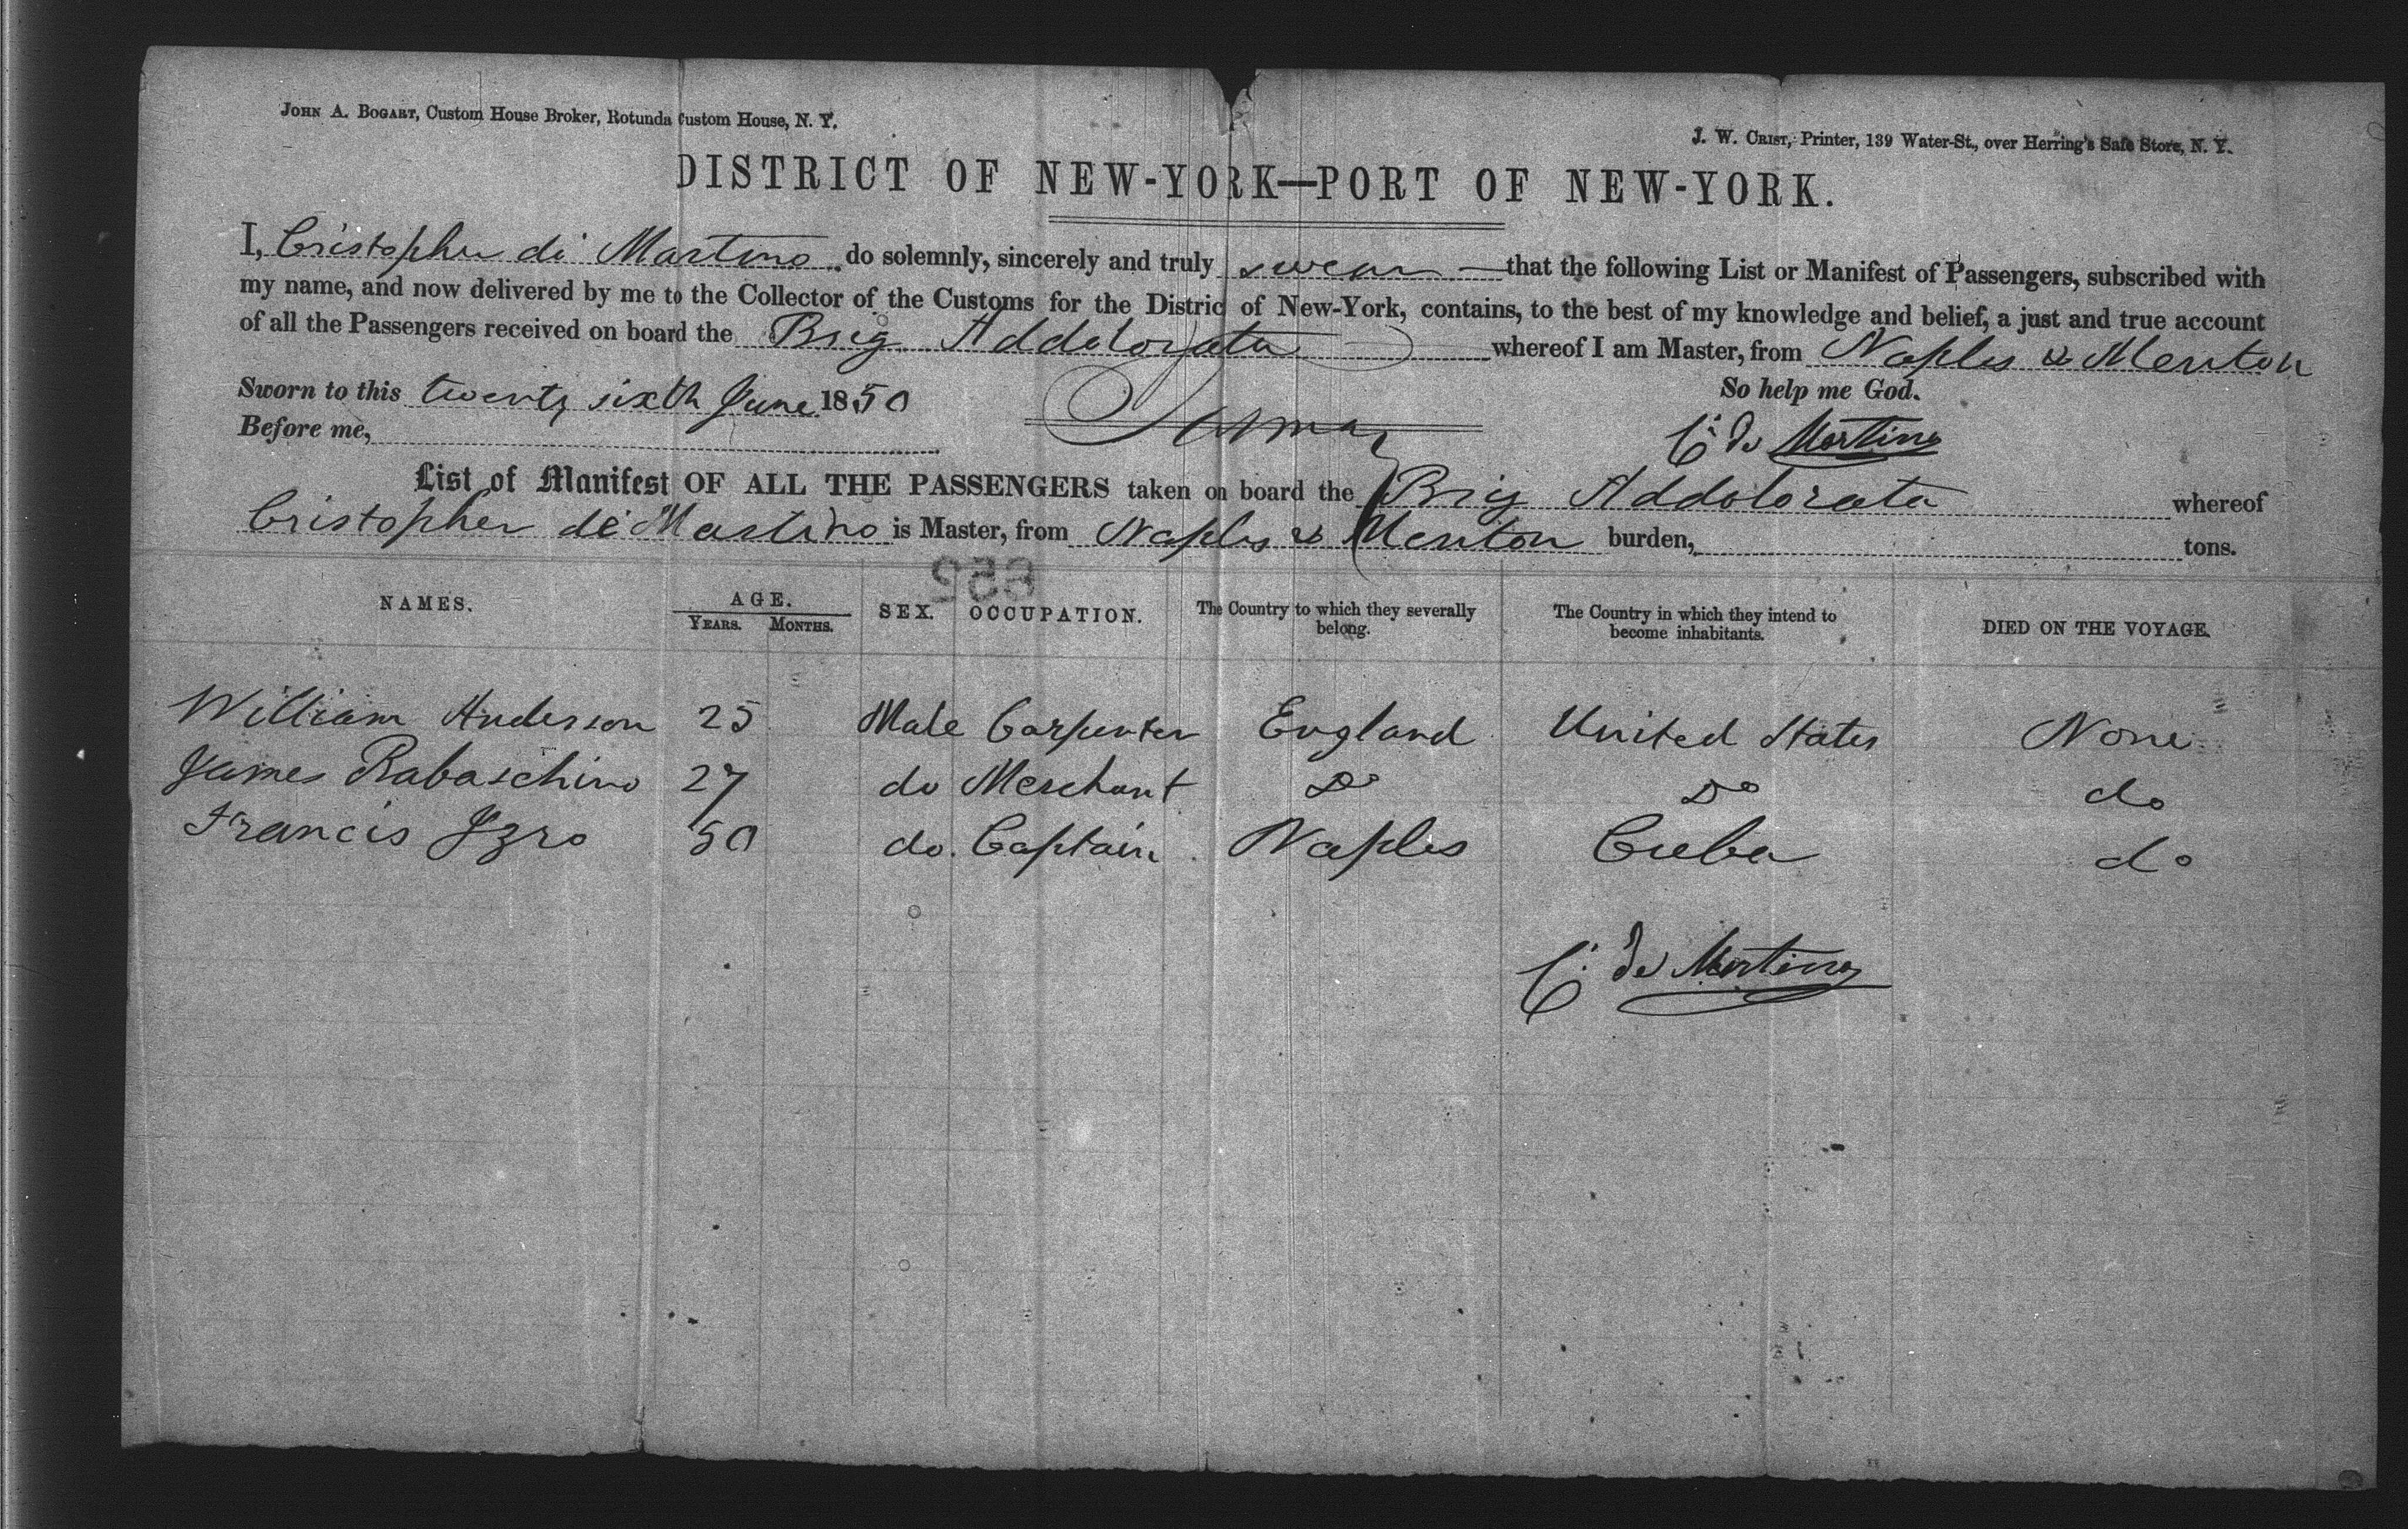 JOHN A. BOGART, Custom House Broker, Rotunda Custom House, N. Y.
J. W. CRIST, Printer, 139 Water-St., over Herring's Safe Store, N. Y.
DISTRICT OF NEW-YORK—PORT OF NEW-YORK.
I, Cristopher di Martino do solemnly, sincerely and truly swear that the following List or Manifest of Passengers, subscribed with
my name, and now delivered by me to the Collector of the Customs for the District of New-York, contains, to the best of my knowledge and belief, a just and true account
of all the Passengers received on board the Brig Addolorata whereof I am Master, from Naples & Menton
Sworn to this twenty sixth June 1850 So help me God.
Before me, C. de Martino
List of Manifest OF ALL THE PASSENGERS taken on board the Brig Addolorata whereof
Cristopher di Martino is Master, from Naples & Menton burden, tons.
652
NAMES. AGE. YEARS. MONTHS. SEX. OCCUPATION. The Country to which they severally belong. The Country in which they intend to become inhabitants. DIED ON THE VOYAGE.
William Anderson 25 Male Carpenter England United States None
James Rabaschino 27 do Merchant Do Do do
Francis Yzro 50 do. Captain Naples Cuba do
C. de Martino